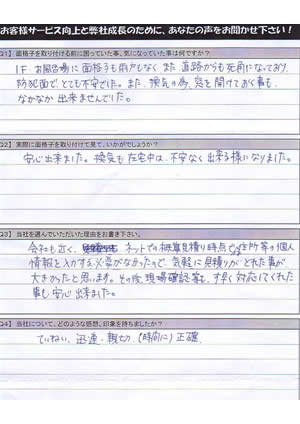 お客様サービス向上と弊社成長のために、あなたの声をお聞かせ下さい!
Q1】面格子を取り付ける前に困っていた事、気になっていた事は何ですか?
1F お風呂場に面格子も雨戸もなく また 道路からも死角になっており、
防犯面で とても不安でした。また、換気の為、窓を開けておく事も
なかなか出来ませんでした。
Q2】実際に面格子を取り付けて見て、いかがでしょうか?
安心出来ました。換気も在宅中は、不安なく出来る様になりました。
Q3】当社を選んでいただいた理由をお書き下さい。
会社も近く、ネットでの概算見積り時点では住所等の個人
情報を入力する必要がなかったので、気軽に見積りがとれた事が
大きかったと思います。その後、現場確認等も、す早く対応してくれた
事も安心出来ました。
Q4】当社について、どのような感想、印象を持ちましたか?
ていねい、迅速・親切、(時間に)正確